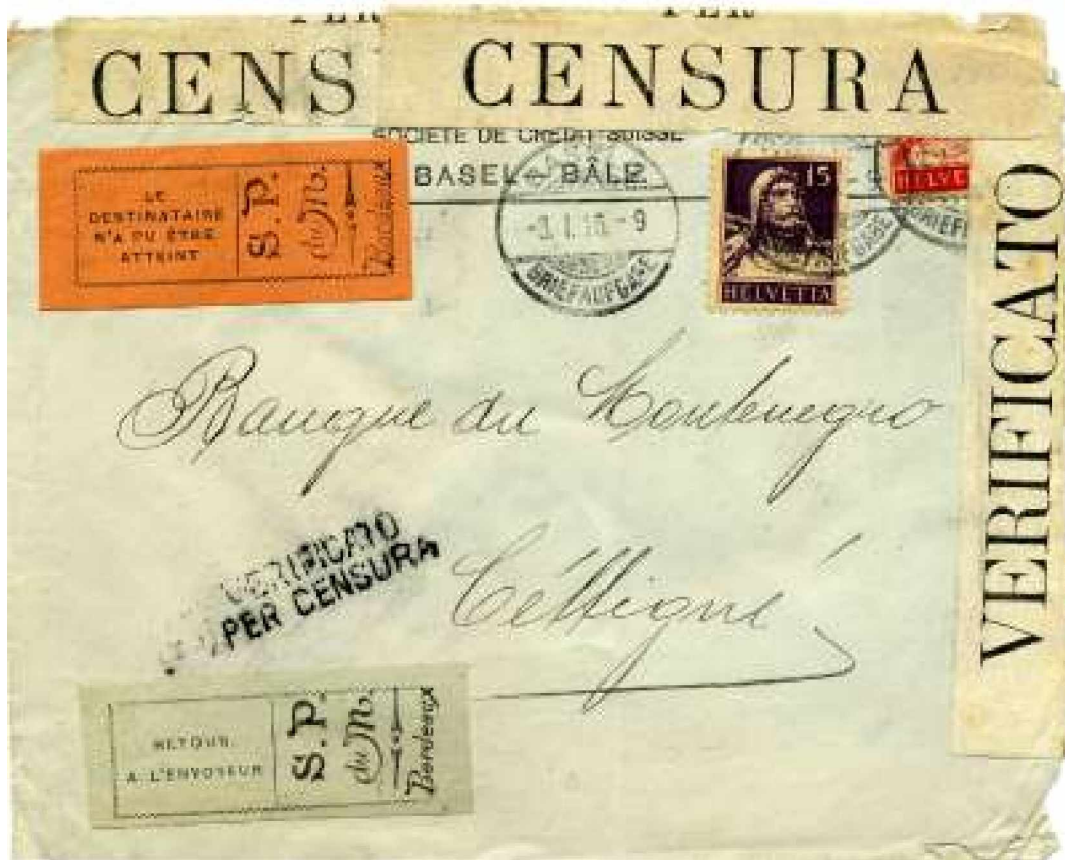 PER
PER
CENS
CENSURA
SOCIÉTÉ DE CRÉDIT SUISSE
BASEL - BÂLE
LE
DESTINATAIRE
N'A PU ÊTRE
ATTEINT
S.P.
du M.
Bordeaux
15
HELVETIA
HELVE
BRIEFAUFGABE
VERIFICATO
Banque du Montenegro
Céttigné
VERIFICATO
PER CENSURA
RETOUR
A L'ENVOYEUR
S.P.
du M.
Bordeaux